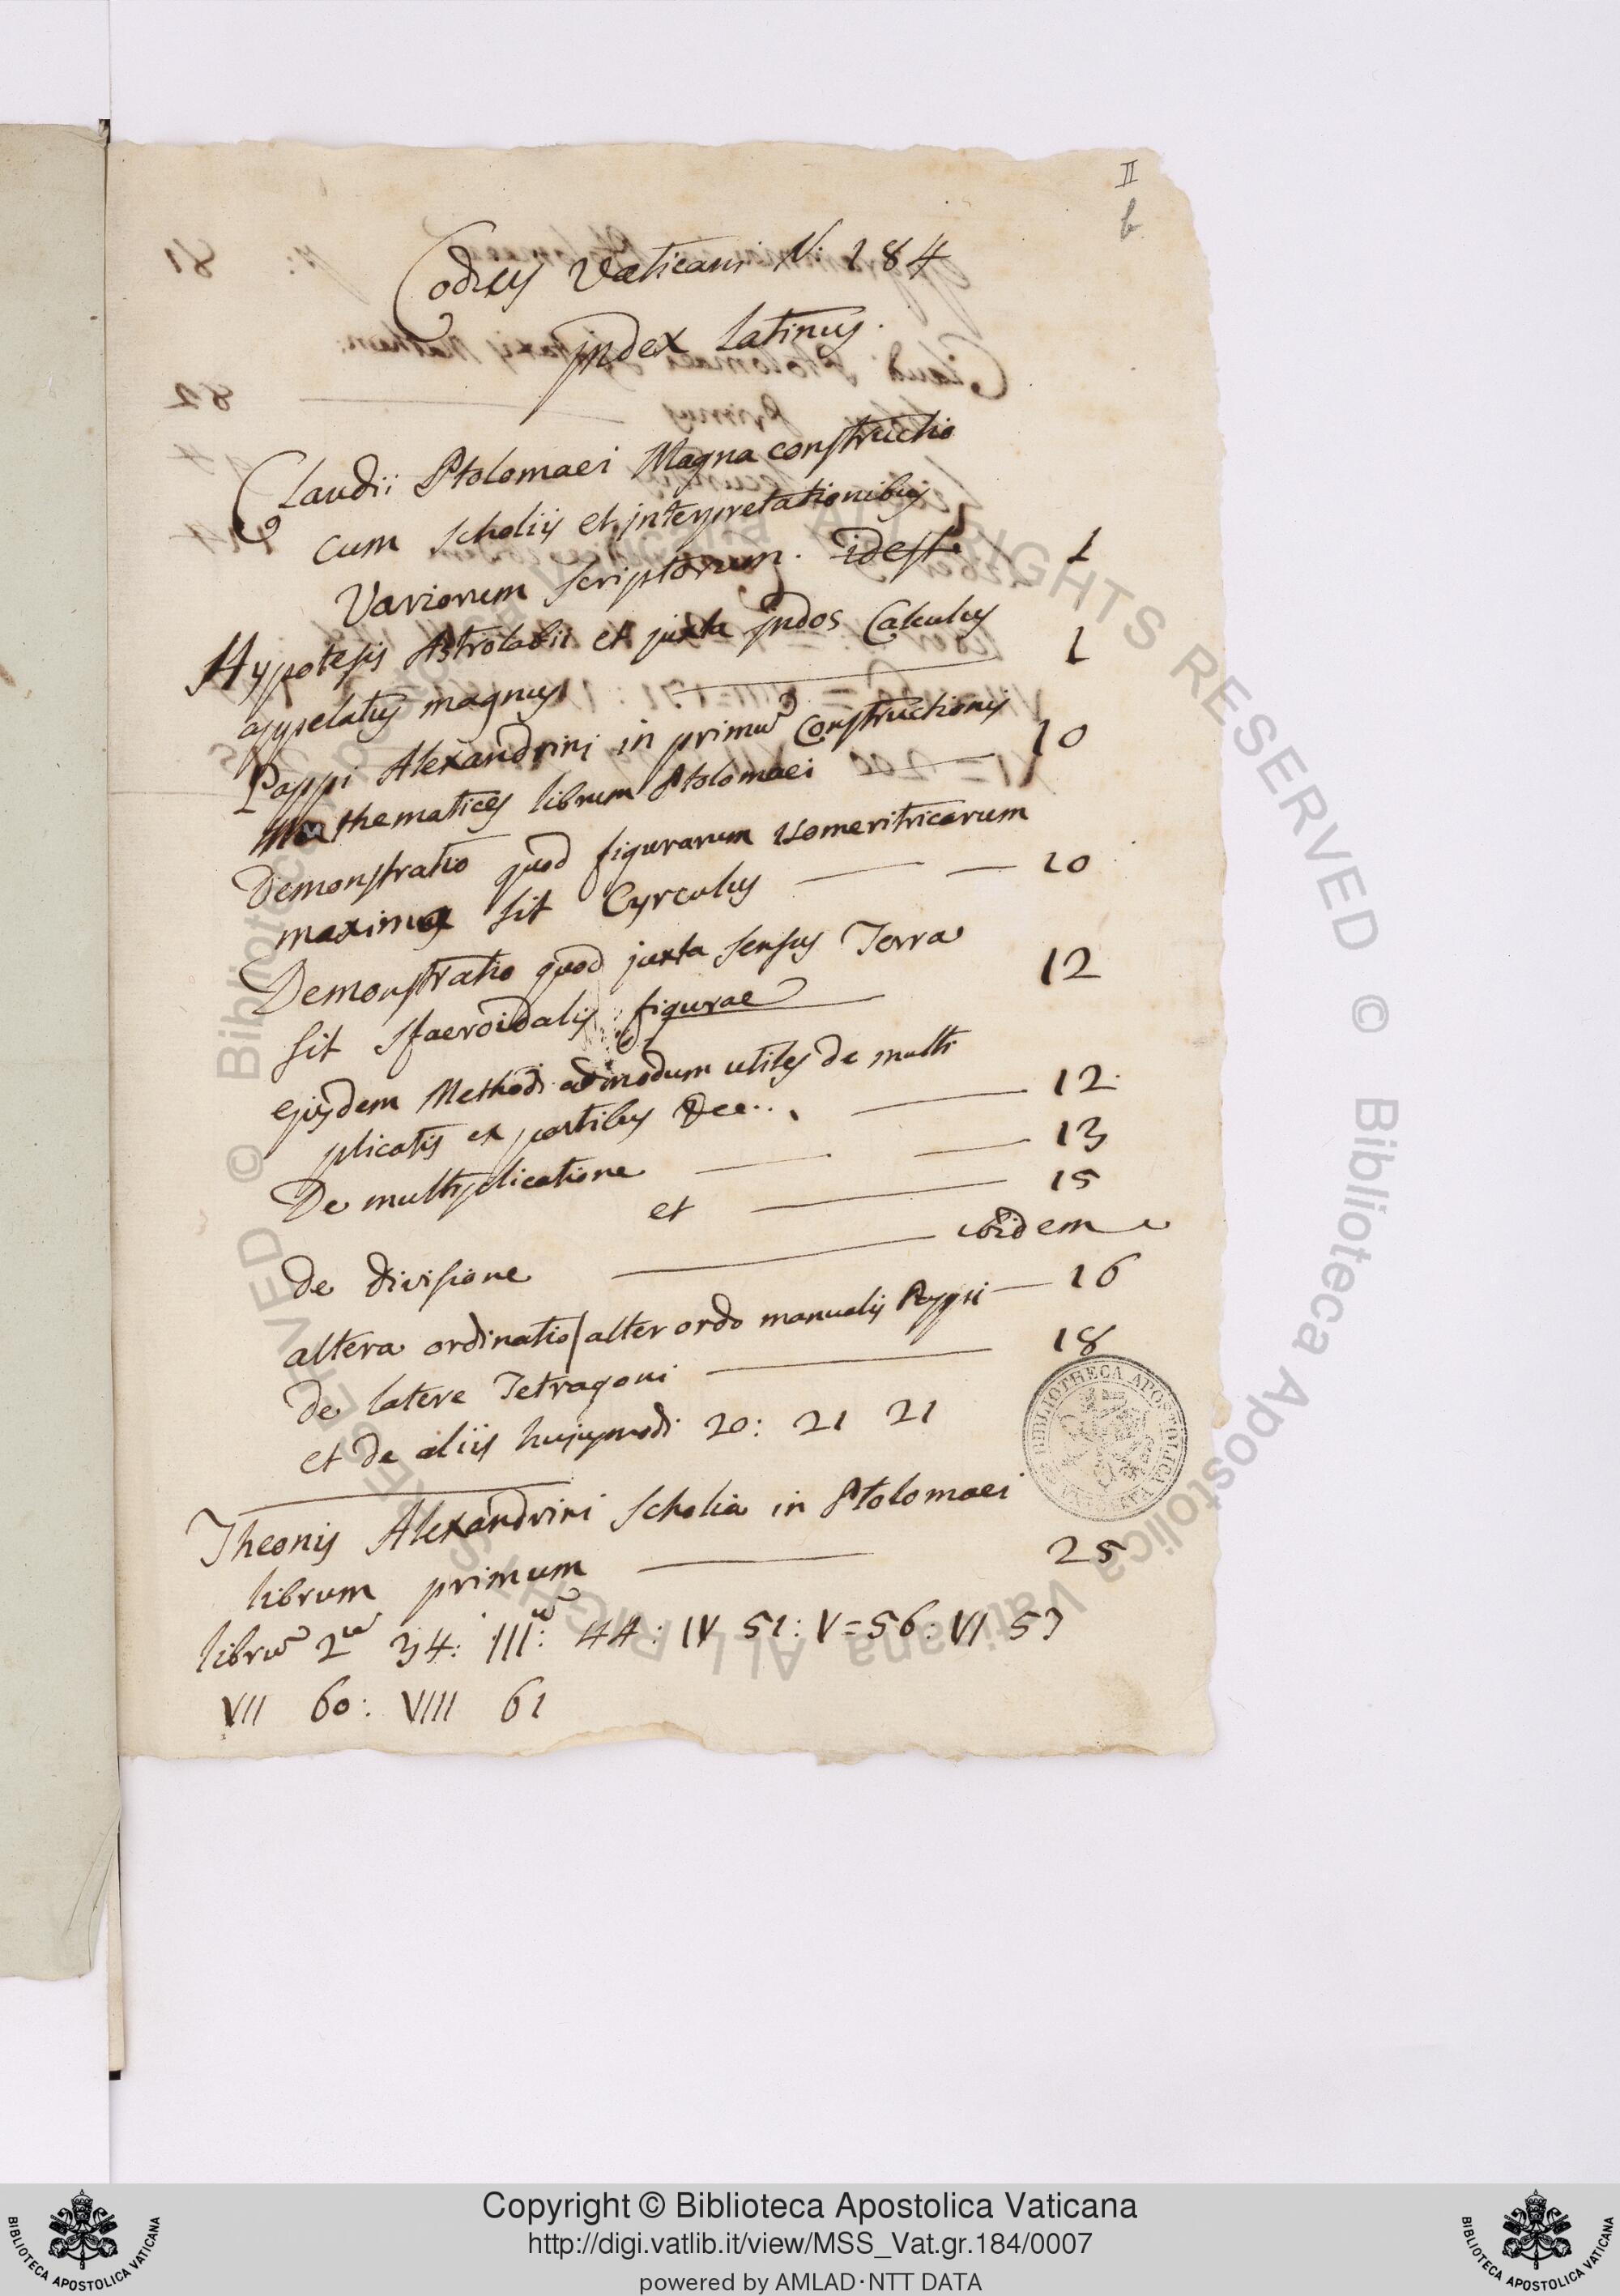 II
b
Codicis Vaticani N: 184
Index Latinus.
Claudii Ptolomaei Magna constructio
cum scholiis et interpretationibus
Variorum scriptorum. idest 1
Hypotesis Astrolabii et juxta Indos Calculus
appelatus magnus 1
Pappi Alexandrini in primu Constructionis
Mathematices librum Ptolomaei 10
Demonstratio quod figurarum isomeritricarum
maximus sit Cyrculus 10
Demonstratio quod juxta sensus Terra
sit sfaeroidalis figurae 12
ejusdem Methodi admodum utiles de multi
plicatis ex partibus 12
De multiplicatione 13
et 15
de divisione ibidem
altera ordinatio/alter ordo manualis Pappi 16
de latere Tetragoni 18
et de aliis hujusmodi 20: 21 21
Theonis Alexandrini scholia in Ptolomaei
librum primum 25
libru 2 34: III: 44: IV 51: V=56: VI 57
VII 60: VIII 61
BIBLIOTHECA APOSTOLICA VATICANA
© Biblioteca Apostolica Vaticana ALL RIGHTS RESERVED © Biblioteca Apostolica Vaticana ALL RIGHTS RESERVED
Copyright © Biblioteca Apostolica Vaticana
http://digi.vatlib.it/view/MSS_Vat.gr.184/0007
powered by AMLAD·NTT DATA
BIBLIOTECA APOSTOLICA VATICANA
BIBLIOTECA APOSTOLICA VATICANA